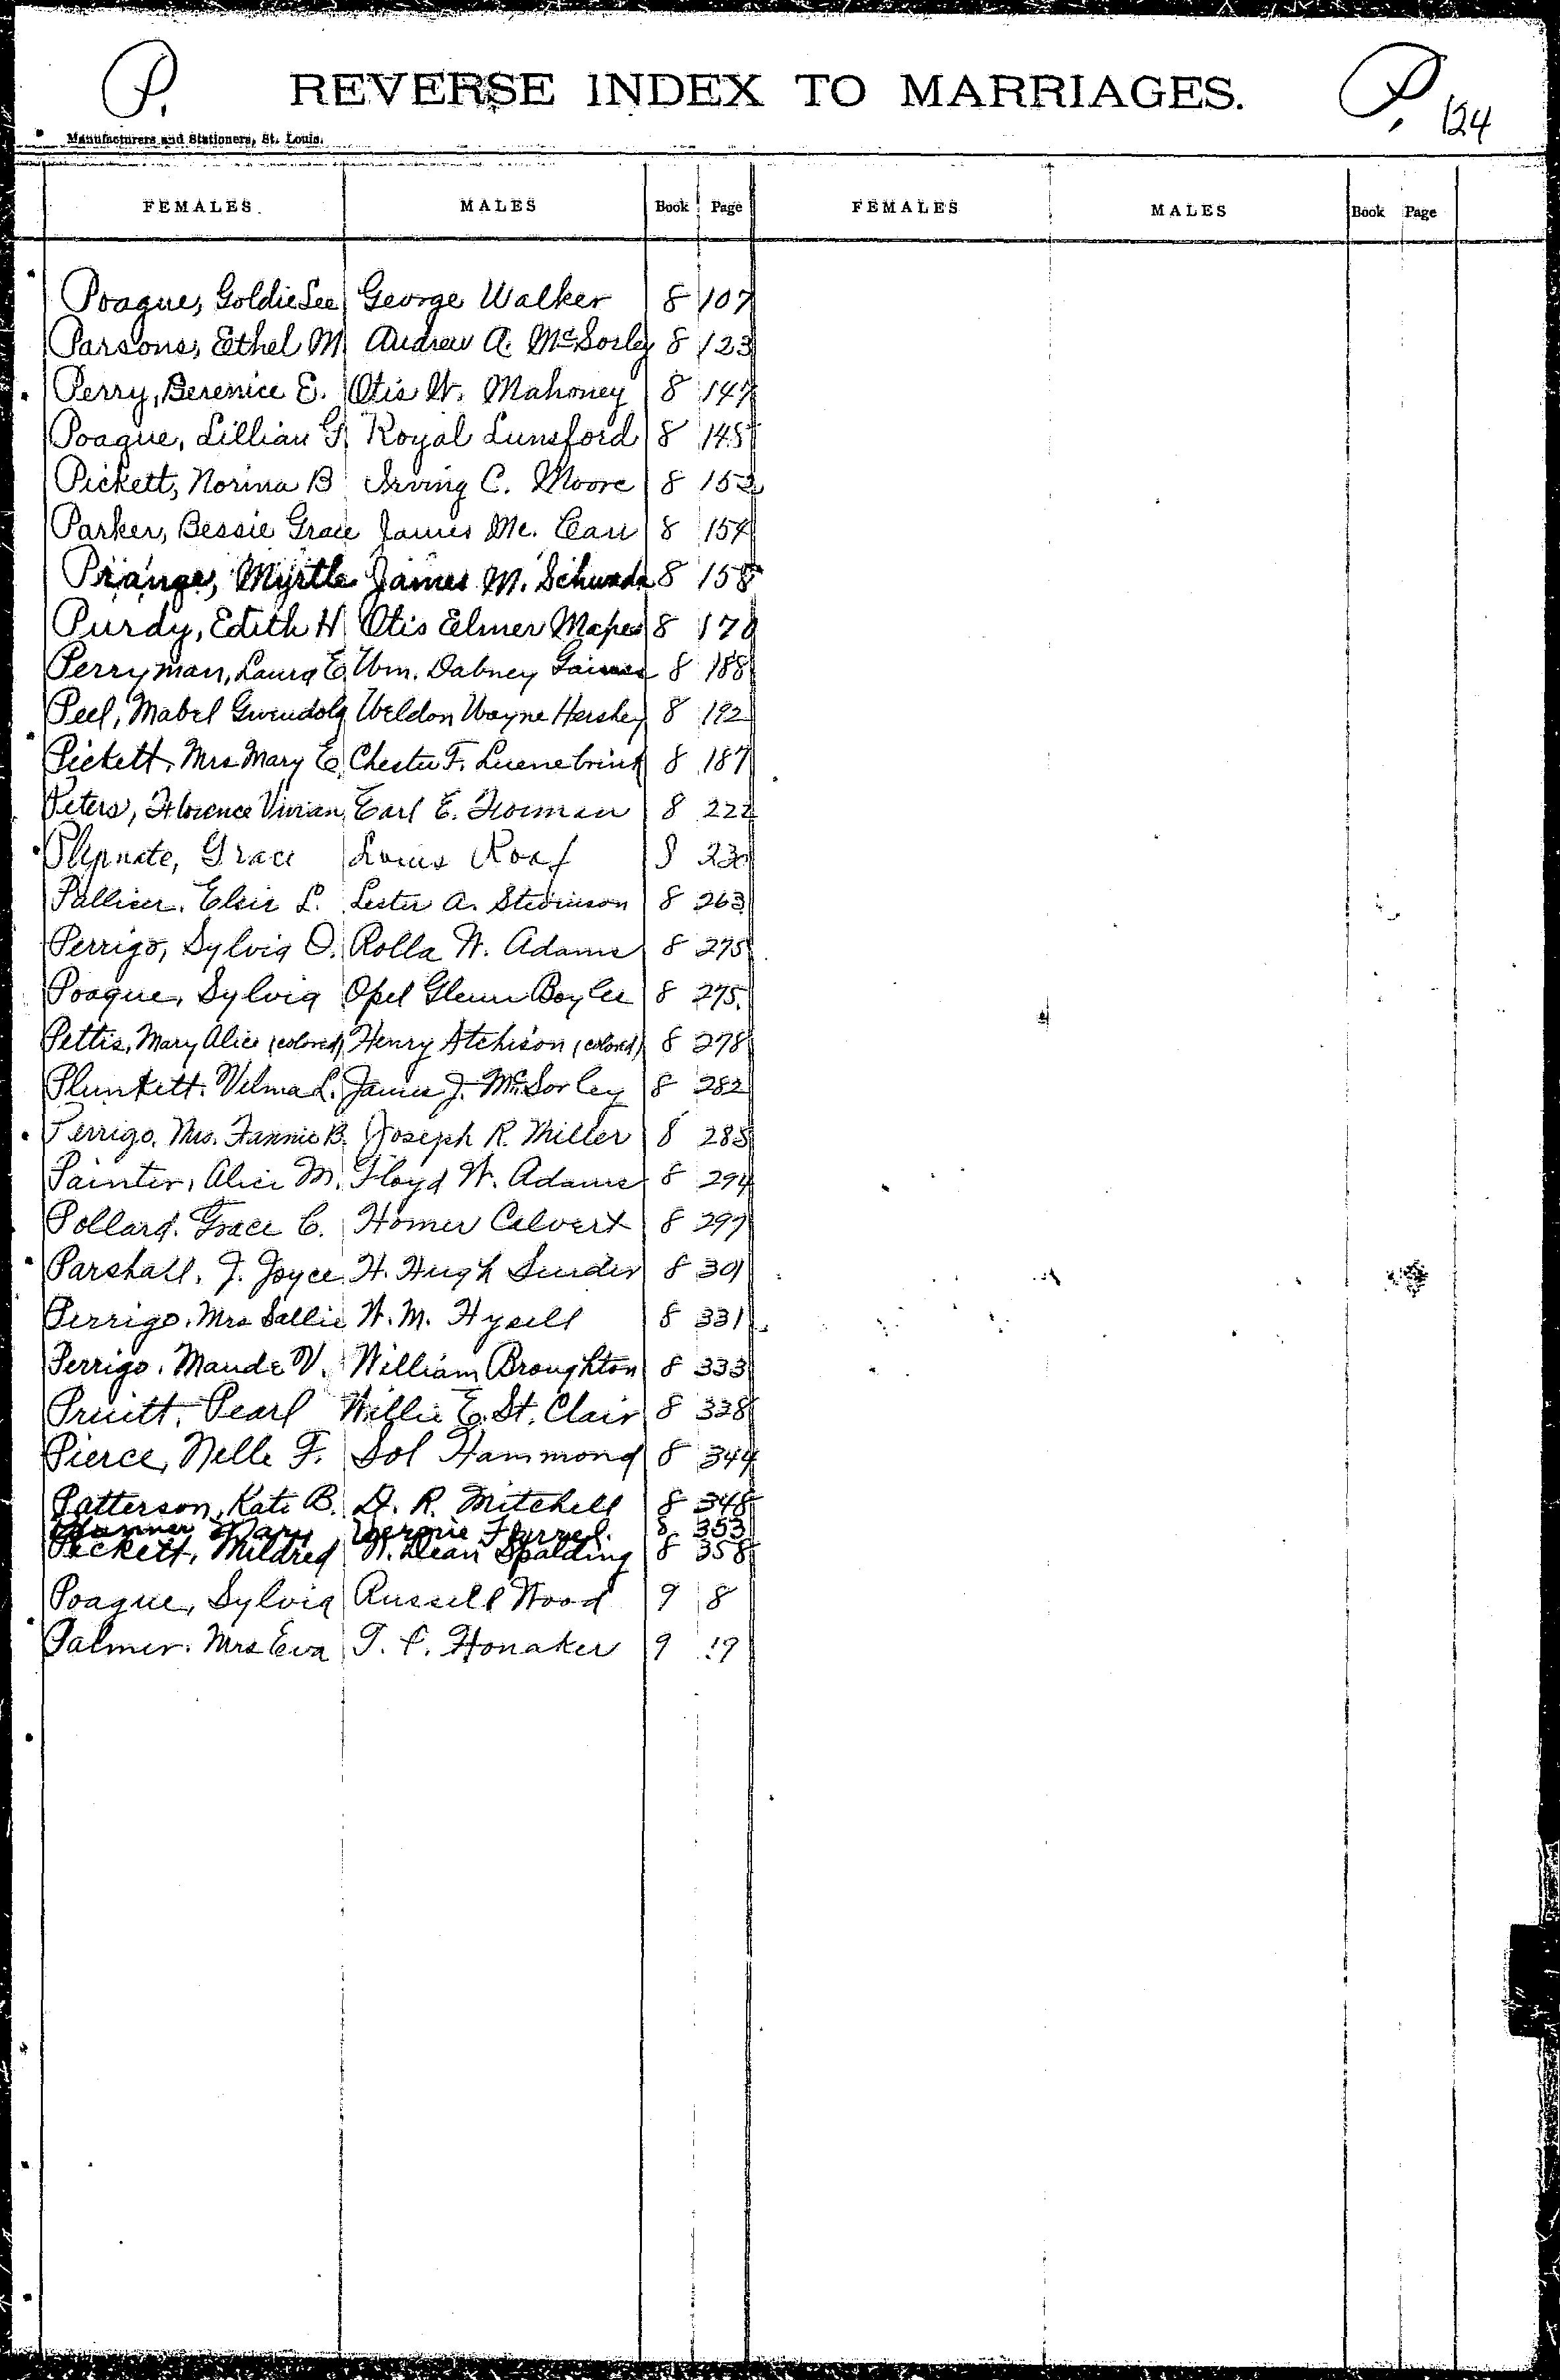 P. REVERSE INDEX TO MARRIAGES. P. 124
Manufacturers and Stationers, St. Louis.
FEMALES. MALES Book Page FEMALES MALES Book Page
Poague, Goldie Lee George Walker 8 107
Parsons, Ethel M Andrew A. McSorley 8 123
Perry, Berenice E. Otis W. Mahoney 8 147
Poague, Lillian G. Royal Lunsford 8 148
Pickett, Norma B Irving C. Moore 8 152
Parker, Bessie Grace James Mc. Carr 8 154
Prange, Myrtle James M. 8 158
Purdy, Edith H Otis Elmer Mapes 8 170
Perryman, Laura E. Wm. Dabney Gaines 8 188
Peel, Mabel Gwendoly Weldon Wayne Hershey 8 192
Pickett, Mrs Mary E. Chester F. Luenebrink 8 187
Peters, Florence Vivian Earl E. 8 222
Grace Louis Roaf 8
Elsie L. Lester A. Stevinson 8 263
Perrigo, Sylvia O. Rolla W. Adams 8 275
Poague, Sylvia Opel Glenn Boyler 8 275.
Pettis, Mary Alice (colored) Henry Atchison (colored) 8 278
Plunkett. Velma L. James J. McSorley 8 282
Perrigo, Mrs. Fannie B. Joseph R. Miller 8 285
Painter, Alice M. Floyd W. Adams 8 294
Pollard. Grace C. Homer Calvert 8 297
Parshall, J. Joyce H. Hugh 8 301
Perrigo. Mrs Sallie W. M. Hysell 8 331
Perrigo. Maude V. William Broughton 8 333
Pruitt, Pearl Willie E. St. Clair 8 338
Pierce, Nelle F. Sol Hammond 8 344
Patterson, Kate B. D. R. Mitchell 8 348
Mary Vernie Ferrel. 8 353
Pickett, Mildred W. Dean Spalding 8 358
Poague, Sylvia Russell Wood 9 8
Palmer. Mrs Eva T. C. Honaker 9 19